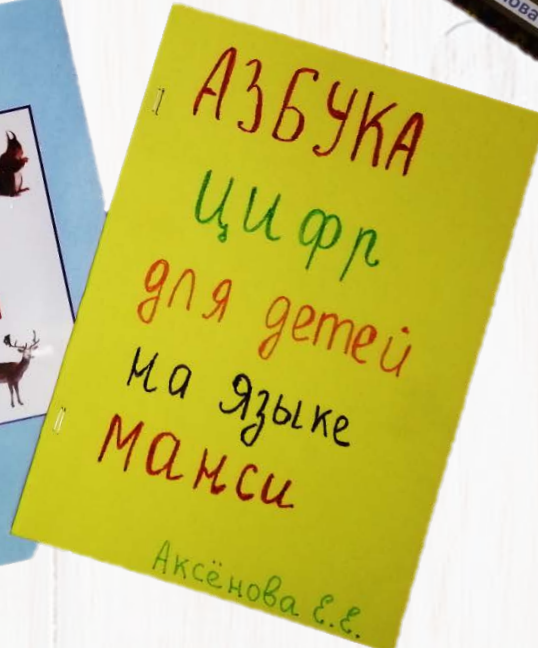 АЗБУКА
цифр
для детей
на языке
манси
Аксёнова Е.Е.